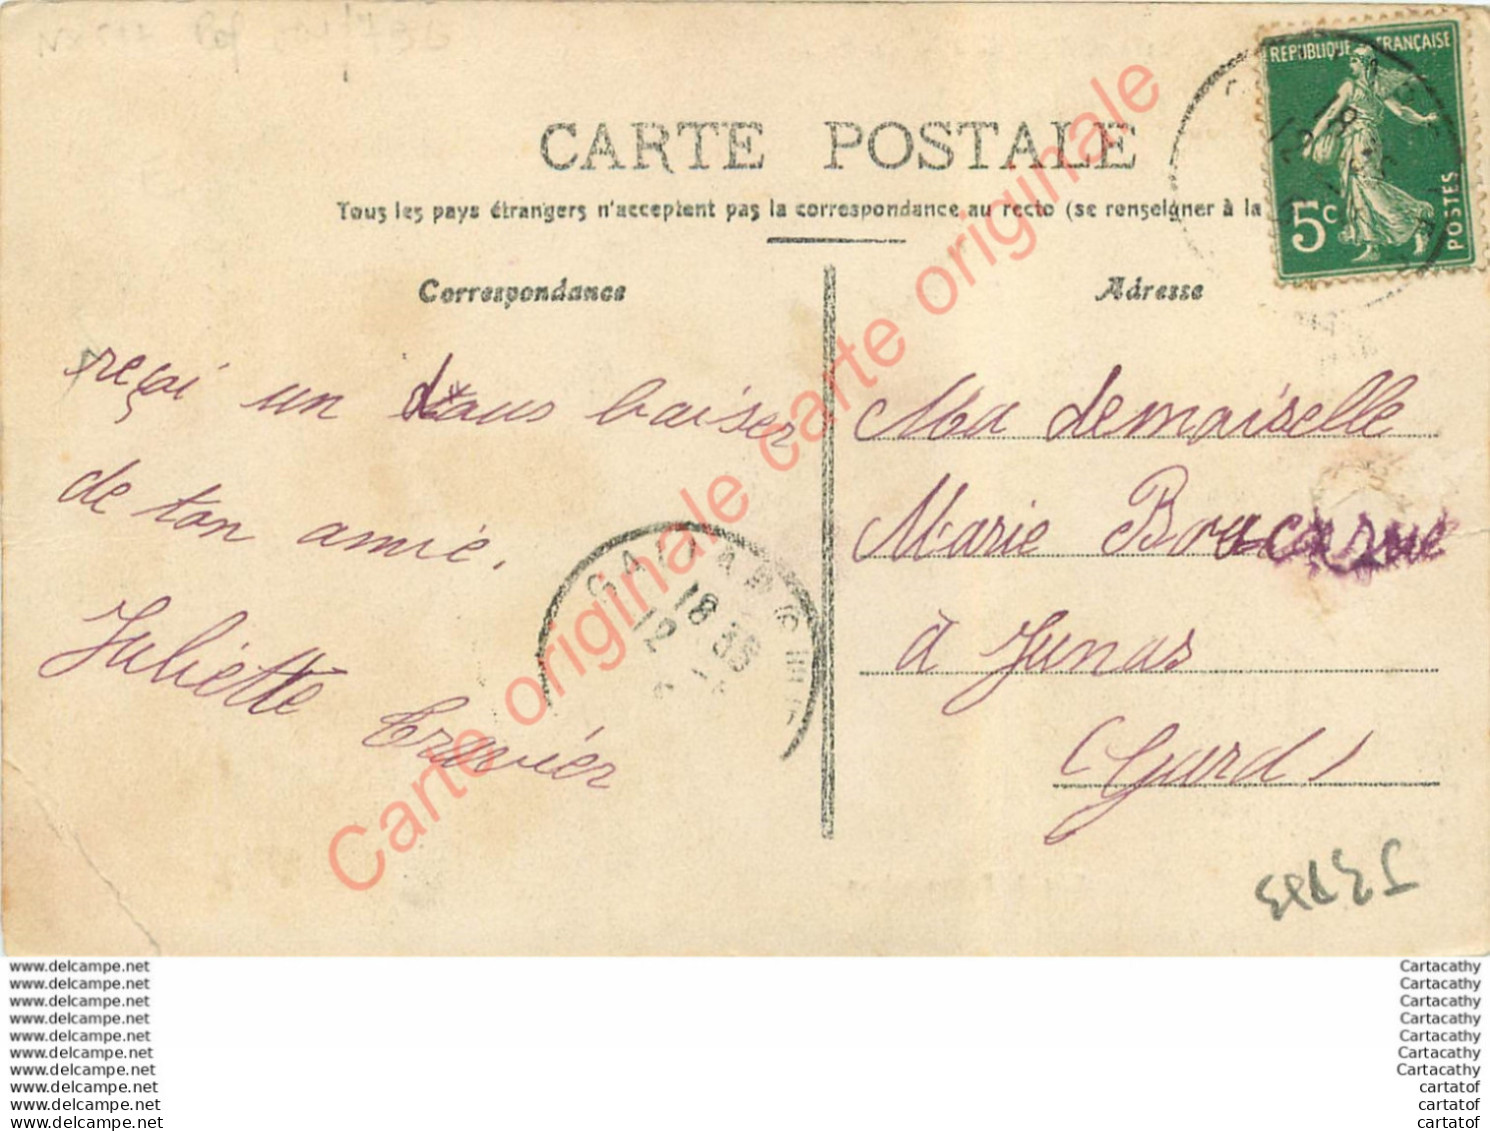 CARTE POSTALE
Tous les pays étrangers n'acceptent pas la correspondance au recto (se renseigner à la
REPUBLIQUE FRANÇAISE
5c POSTES
Correspondance
reçoi un doux baiser
de ton amie.
Juliette Travier
GALLARGUES
18 35
12
Adresse
Mademoiselle
Marie
à Junas
(Gard)
Carte originale carte originale
www.delcampe.net
www.delcampe.net
www.delcampe.net
www.delcampe.net
www.delcampe.net
www.delcampe.net
www.delcampe.net
www.delcampe.net
www.delcampe.net
www.delcampe.net
Cartacathy
Cartacathy
Cartacathy
Cartacathy
Cartacathy
Cartacathy
Cartacathy
cartatof
cartatof
cartatof